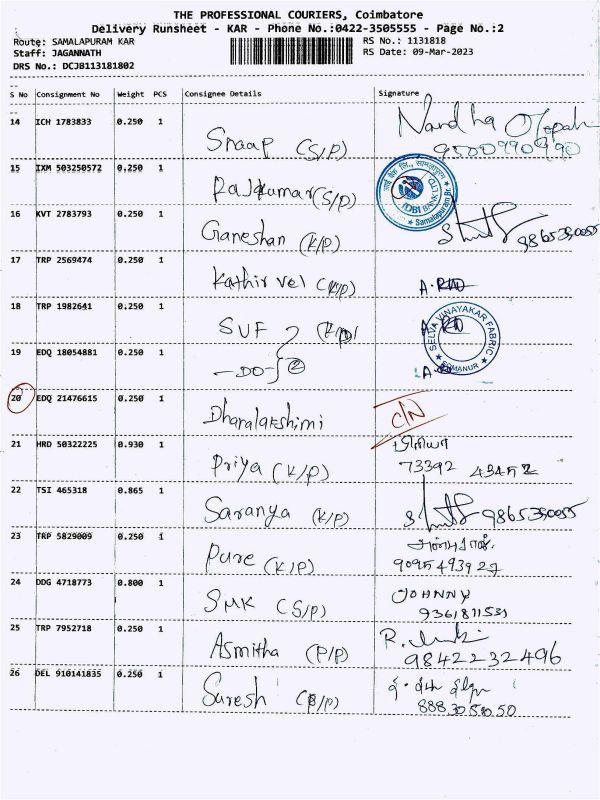 THE PROFESSIONAL COURIERS, Coimbatore
Delivery Runsheet - KAR - Phone No.:0422-3505555 - Page No.:2
Route: SAMALAPURAM KAR
RS No.: 1131818
Staff: JAGANNATH
RS Date: 09-Mar-2023
DRS No.: DCJB113181802
S No Consignment No Weight PCS Consignee Details Signature
14 ICH 1783833 0.250 1 Snaap (S/P) Nandha
15 IXM 503250572 0.250 1 Rajkumar (S/P) IDBI BANK LTD Samalapuram Br.
16 KVT 2783793 0.250 1 Ganeshan (K/P)
17 TRP 2569474 0.250 1 Kathirvel (K/P)
18 TRP 1982641 0.250 1 SVF SELVA VINAYAKAR FABRIC SOMANUR
19 EDQ 18054881 0.250 1 -DO- 2
20 EDQ 21476615 0.250 1 Dharalakshimi C/N
21 HRD 50322225 0.930 1 Priya (K/P) 73392
22 TSI 465318 0.865 1 Saranya (K/P)
23 TRP 5829009 0.250 1 Pure (K/P)
24 DDG 4718773 0.800 1 SMK (S/P) JOHNNY
9361811531
25 TRP 7952718 0.250 1 Asmitha (P/P)
9842232496
26 DEL 910141835 0.250 1 Suresh